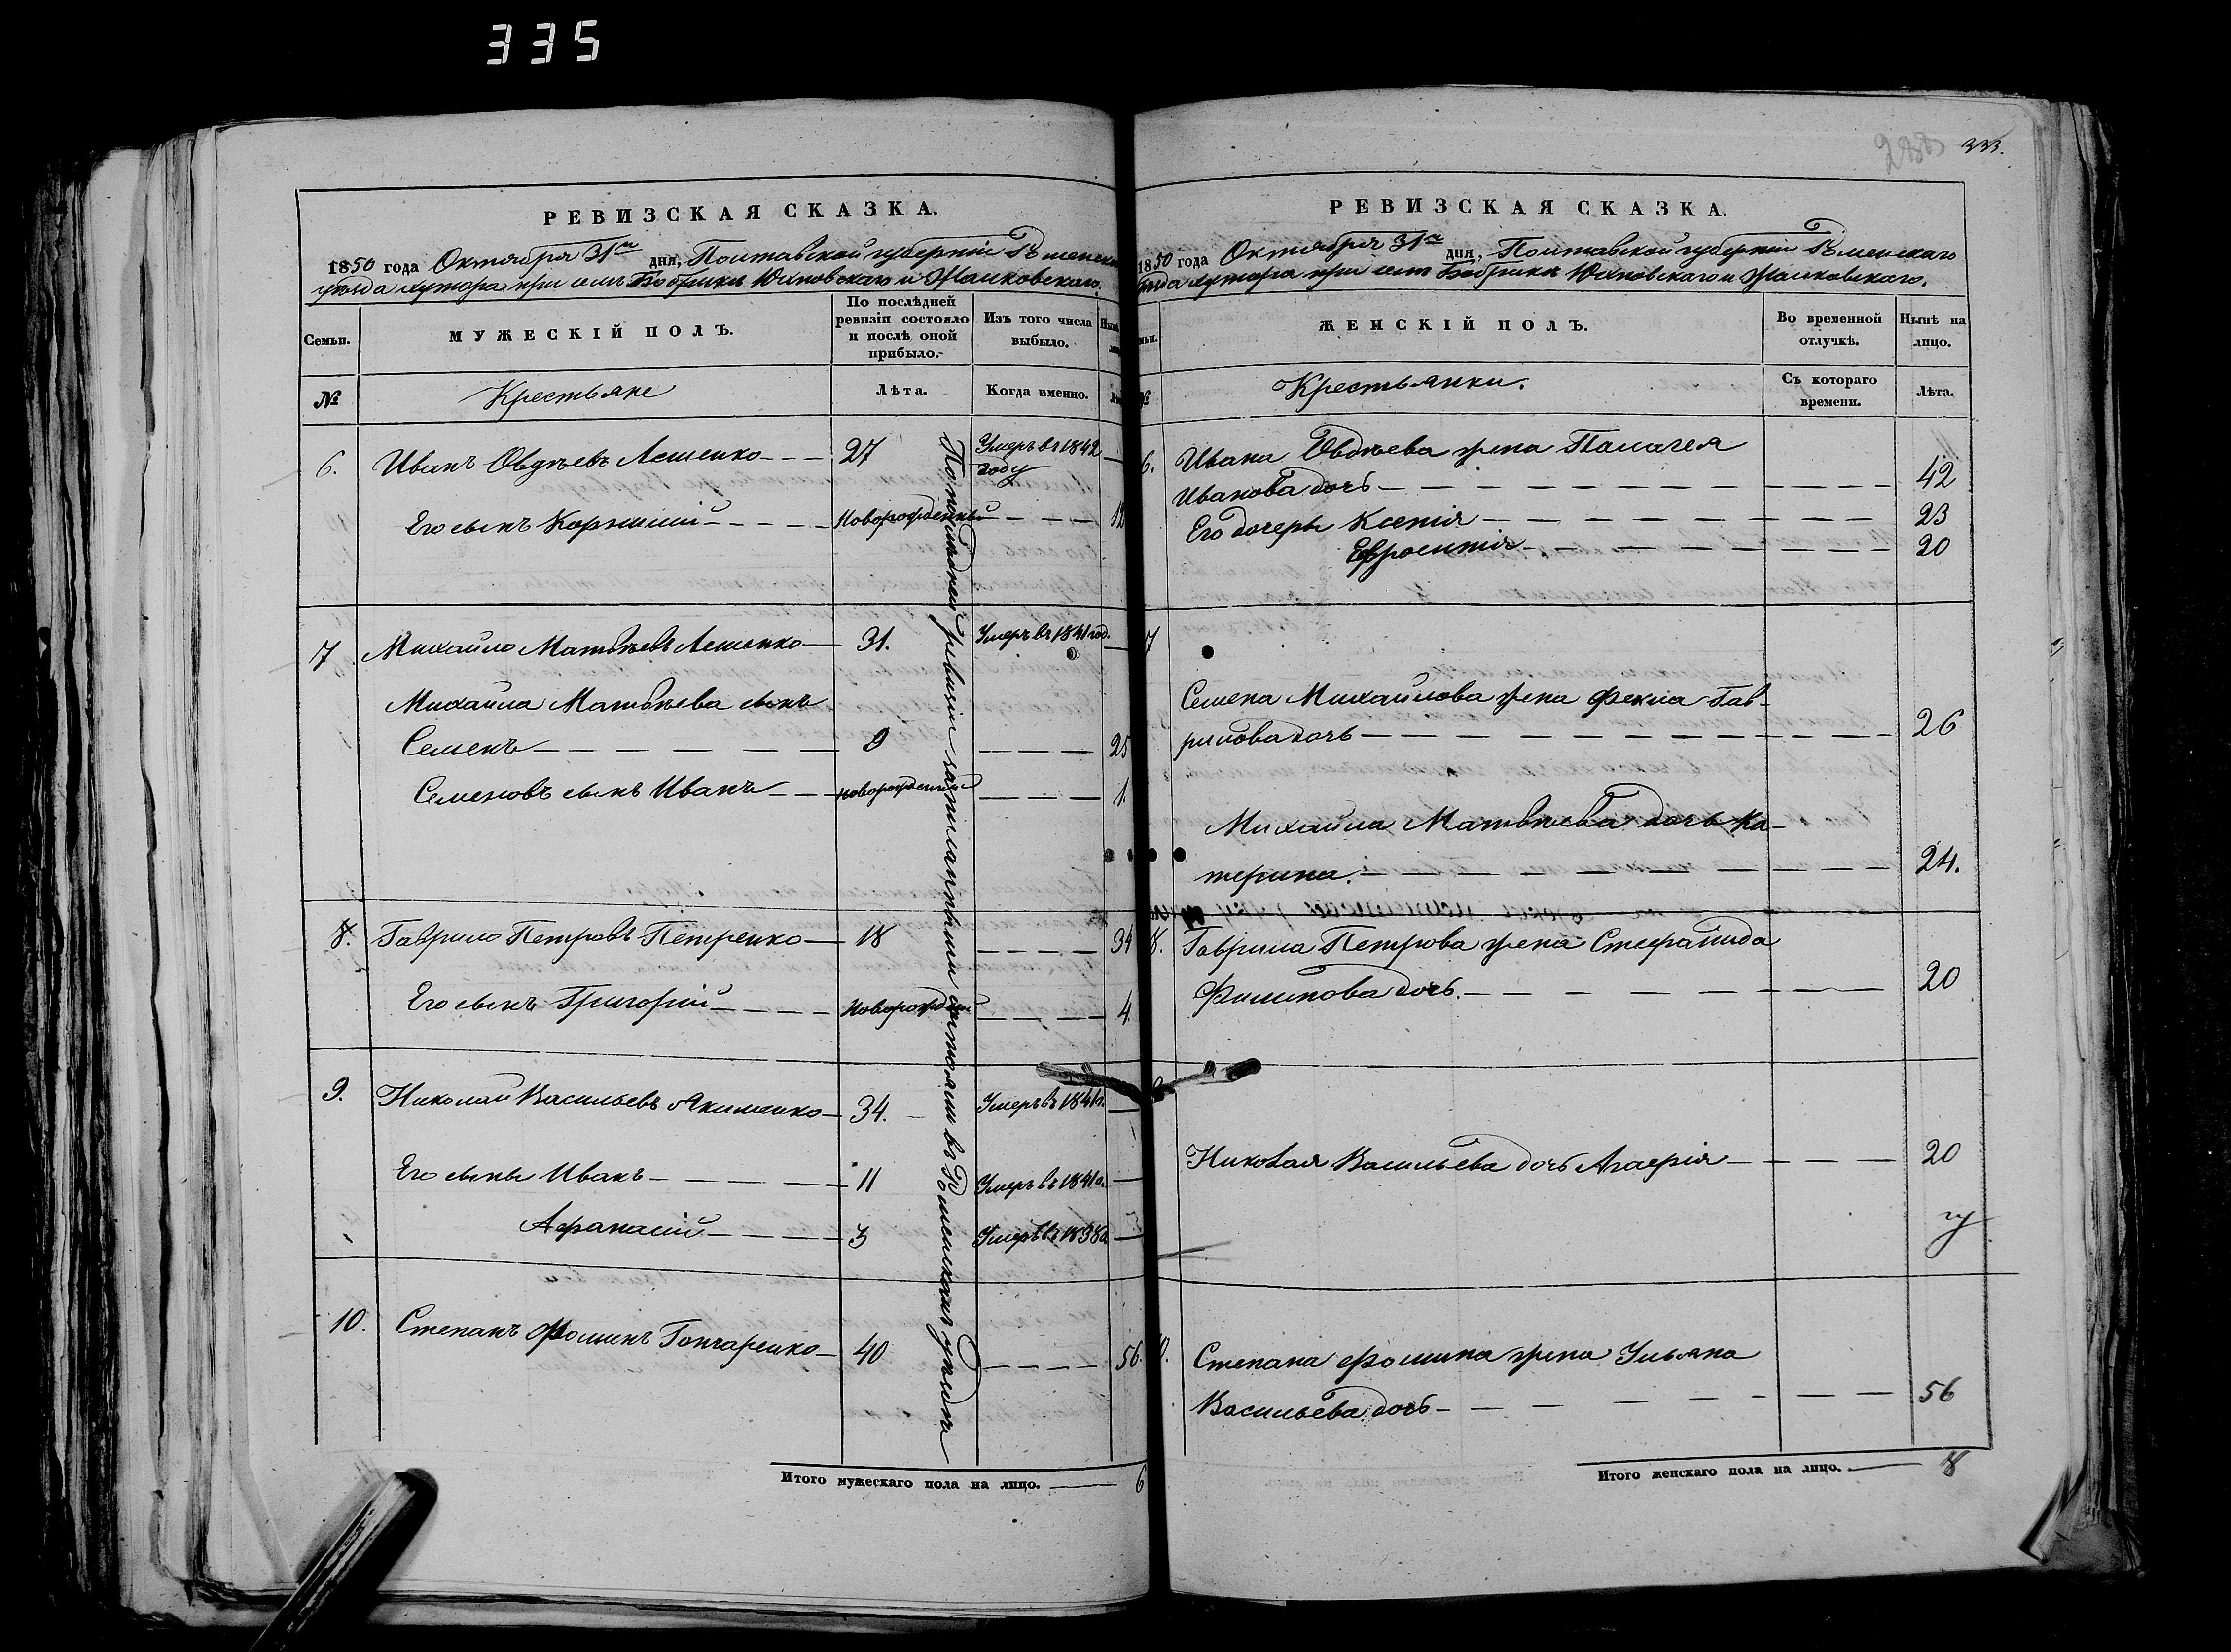 335
РЕВИЗСКАЯ СКАЗКА.
1850 года Октября 31го дня, Полтавской губерніи Роменскаго
уѣзда хутора при селѣ Бобрикѣ Юхновскаго и Малковскаго.
Семьи.
МУЖЕСКІЙ ПОЛЪ.
По послѣдней
ревизіи состояло
и послѣ оной
прибыло.
Изъ того числа
выбыло.
№
Крестьяне
Лѣта.
Когда именно.
6. Иванъ Овдѣевъ Лешенко 27 Умеръ въ 1842
году
Его сынъ Корнилій Новорожденный 12
7 Михайло Матвѣевъ Лешенко 31. Умеръ въ 1841 год.
Михайла Матвѣева сынъ
Семенъ 9 25
Семеновъ сынъ Иванъ новорожденный 1.
8. Гаврило Петровъ Петренко 18 34
Его сынъ Григорій Новорожден 4.
9. Николай Васильевъ Якименко 34. Умеръ въ 1841г.
Его сыны Иванъ 11 Умеръ въ 1841г.
Афанасій 3 Умеръ въ 1838г.
10. Степанъ Фоминъ Гончаренко 40 56.
По послѣдней ревизіи записанными въ Роменскомъ уѣздѣ
Итого мужескаго пола на лицо. 6
333.
РЕВИЗСКАЯ СКАЗКА.
1850 года Октября 31го дня, Полтавской губерніи Роменскаго
уѣзда хутора при селѣ Бобрикѣ Юхновскаго и Малковскаго.
ЖЕНСКІЙ ПОЛЪ.
Во временной
отлучкѣ.
Нынѣ на
лицо.
Крестьянки.
Съ котораго
времени.
Лѣта.
6. Ивана Овдѣева жена Палагея
Иванова дочь 42
Его дочери Ксенія 23
Ефросинія 20
7
Семена Михайлова жена Фекла Гав-
рилова дочь 26
Михайла Матвѣева дочь Ка-
терина. 24.
8. Гаврила Петрова жена Стефанида
Филипова дочь. 20
Николая Васильева дочь Агафія 20
Степана Фомина жена Ульяна
Васильева дочь 56
Итого женскаго пола на лицо. 8